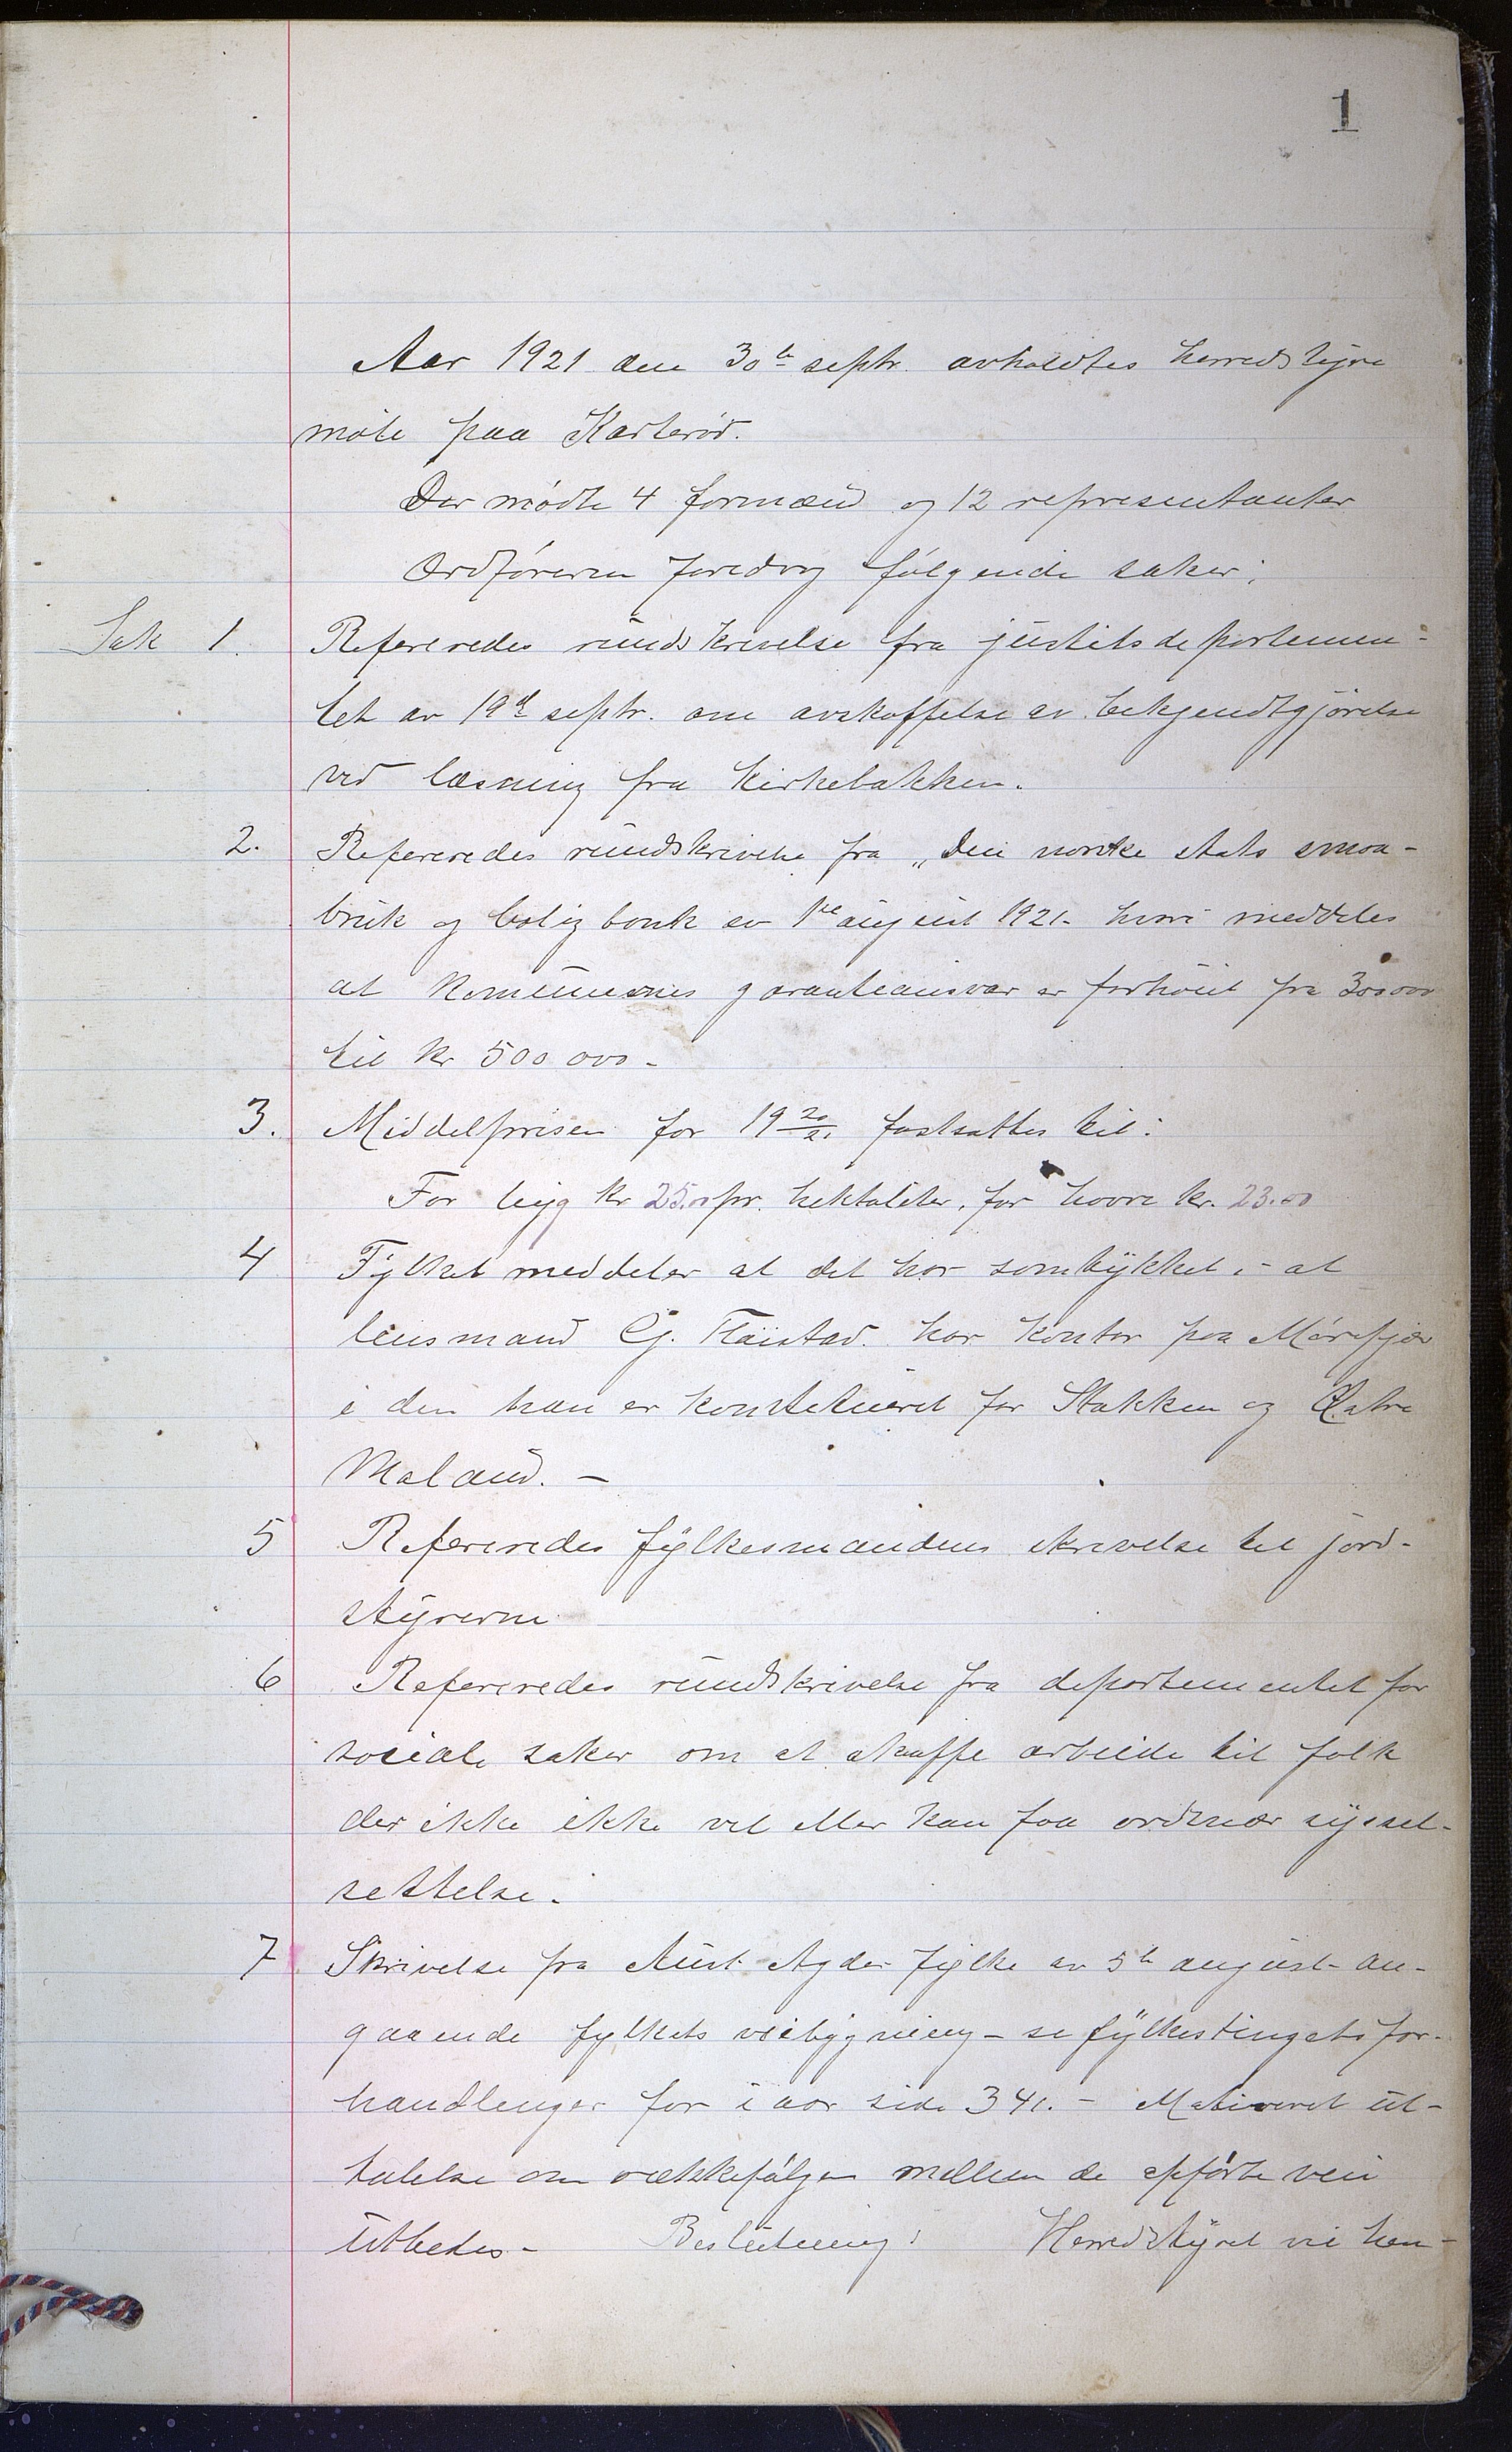 1
Aar 1921 den 30te septr. avholdtes herredstyre
møte paa Karterød.
Der mødte 4 formænd og 12 representanter
Ordføreren foredrog følgende saker:
Sak 1. Refereredes rundskrivelse fra justitsdepartemen-
tet av 19de septr. om avskaffelse av bekjendtgjørelse
ved læsning fra kirkebakken.
2. Refereredes rundskrivelse fra „Den norske stats smaa-
bruk og boligbank av 1ste august 1921 - hvori meddeles
at kommunernes garantiansvar er forhøiet fra 300 000
til kr 500 000 -
3. Middelprisen for 19 20/21 fastsattes til:
For byg kr 25.00 pr. hektoliter, for havre kr. 23.00
4 Fylket meddeler at det har samtykket i at
lensmand G. Fløistad har kontor paa Mørefjær
i den han er konstitueret for Stokken og Østre
Moland. -
5 Refereredes fylkesmandens skrivelse til jord-
styrerne
6 Refereredes rundskrivelse fra departementet for
sociale saker om at skaffe arbeide til folk
der ikke ikke vil eller kan faa ordinær syssel-
settelse.
7 Skrivelse fra Aust-Agder fylke av 5te august an-
gaaende fylkets veibygning - se fylkestingets for-
handlinger for i aar side 341. - Motiveret ut-
talelse om rækkefølgen mellem de opførte veie
utbedes - Beslutning: Herredstyret vil hen-